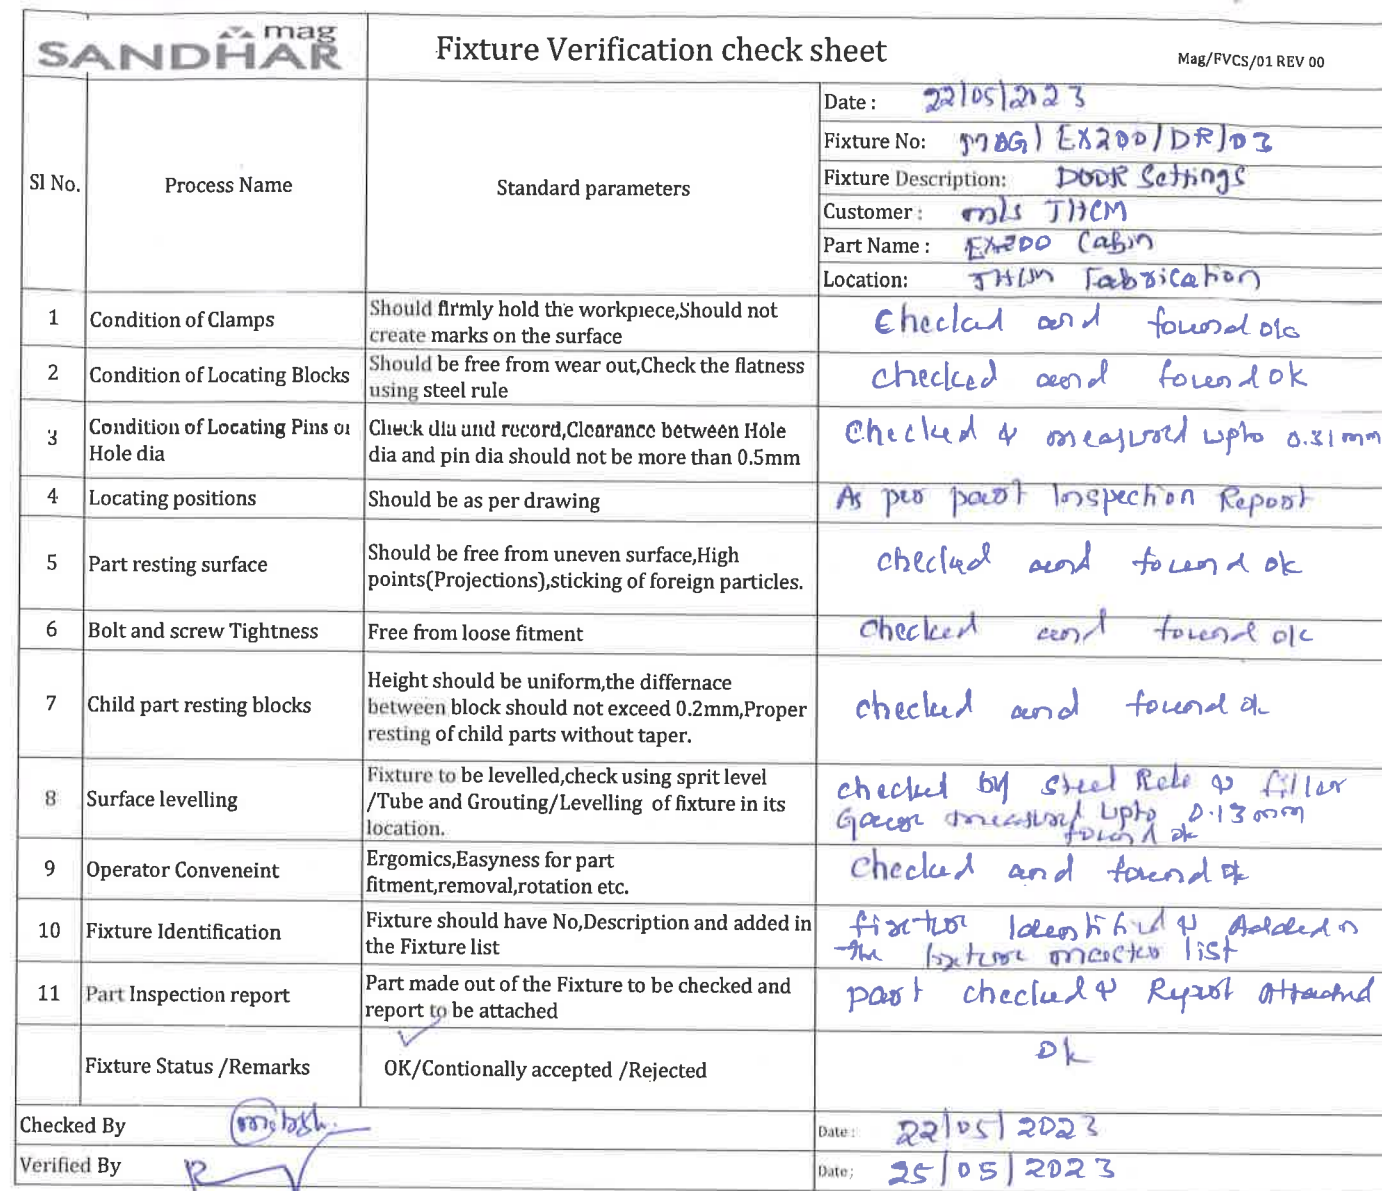 mag
SANDHAR
Fixture Verification check sheet
Mag/FVCS/01 REV 00
Sl No.
Process Name
Standard parameters
Date : 22/05/2023
Fixture No: MAG/EX200/DR/03
Fixture Description: DOOR Settings
Customer : M/s THCM
Part Name : EX200 Cabin
Location: THCM Fabrication
1
Condition of Clamps
Should firmly hold the workpiece,Should not
create marks on the surface
Checked and found ok
2
Condition of Locating Blocks
Should be free from wear out,Check the flatness
using steel rule
checked and found ok
3
Condition of Locating Pins or
Hole dia
Check dia and record,Clearance between Hole
dia and pin dia should not be more than 0.5mm
Checked & measured upto 0.31mm
4
Locating positions
Should be as per drawing
As per part Inspection Report
5
Part resting surface
Should be free from uneven surface,High
points(Projections),sticking of foreign particles.
checked and found ok
6
Bolt and screw Tightness
Free from loose fitment
checked and found ok
7
Child part resting blocks
Height should be uniform,the differnace
between block should not exceed 0.2mm,Proper
resting of child parts without taper.
checked and found ok
8
Surface levelling
Fixture to be levelled,check using sprit level
/Tube and Grouting/Levelling of fixture in its
location.
checked by steel Rule & filler
measured upto 0.13mm
found ok
9
Operator Conveneint
Ergomics,Easyness for part
fitment,removal,rotation etc.
Checked and found ok
10
Fixture Identification
Fixture should have No,Description and added in
the Fixture list
fixture Identified & Added in
the fixture master list
11
Part Inspection report
Part made out of the Fixture to be checked and
report to be attached
part checked & Report Attached
Fixture Status /Remarks
OK/Contionally accepted /Rejected
Ok
Checked By
Date : 22/05/2023
Verified By
Date : 25/05/2023